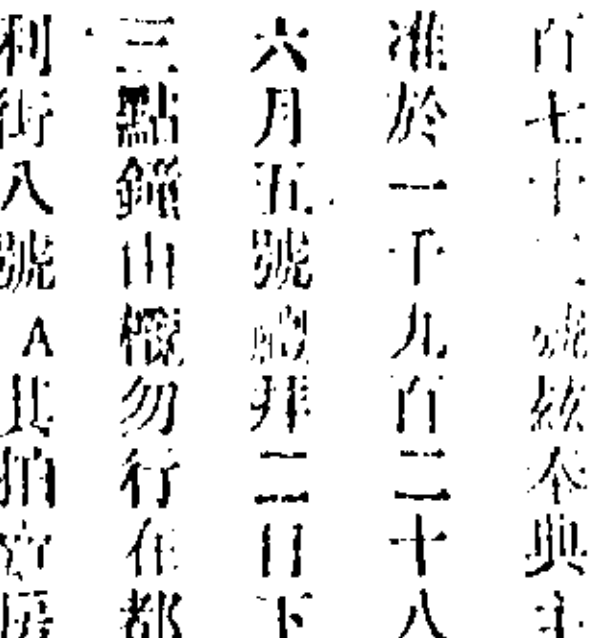 百七十二號茲奉典主
准於一千九百二十八
六月五號禮拜二日下
三點鐘由樓勿行在都
利街八號A其拍賣房